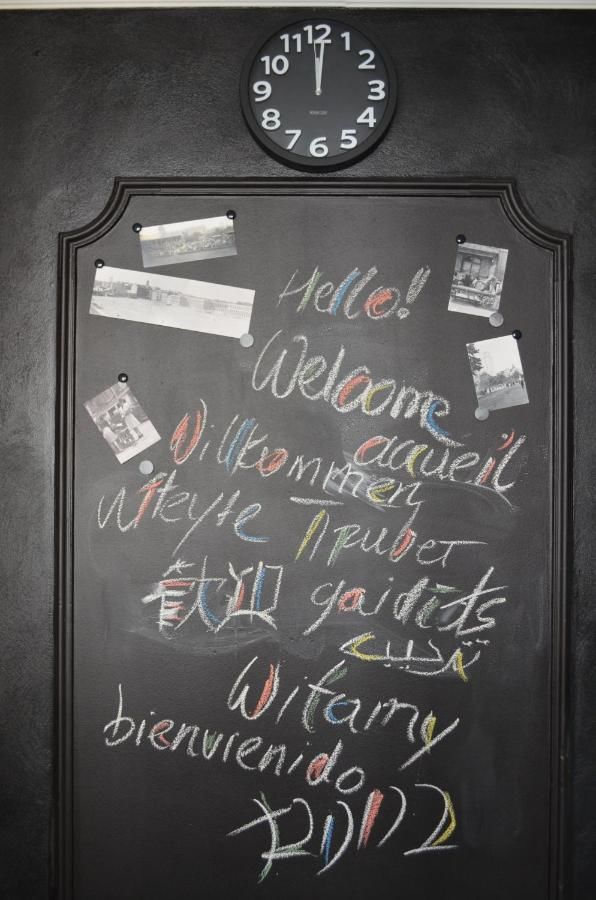 12
11 1
10 2
9 3
8 4
7 5
6
Hello!
Welcome
accueil
Willkommen
Witeyte Привет
歡迎 gaidīts
ترحيب
Witamy
bienvenido